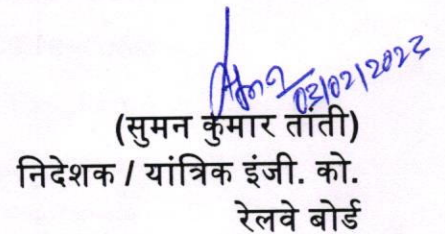 03/02/2023
(सुमन कुमार तांती)
निदेशक / यांत्रिक इंजी. को.
रेलवे बोर्ड